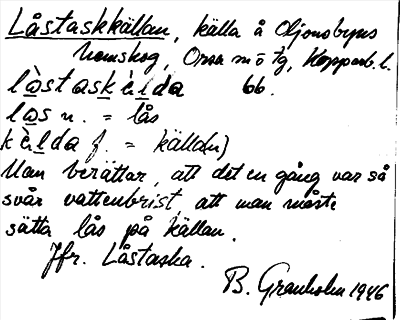 Låstaskkällan, källa å Oljonsbyns
hemskog, Orsa sn o tg, Kopparb. l.
là̱staskè̱lda 66.
lɑ̱s n. = lås
kè̱lda f. = källa(n)
Man berättar, att det en gång var så
svår vattenbrist, att man måste
sätta lås på källan.
Jfr. Låstaska.
B. Granholm 1946